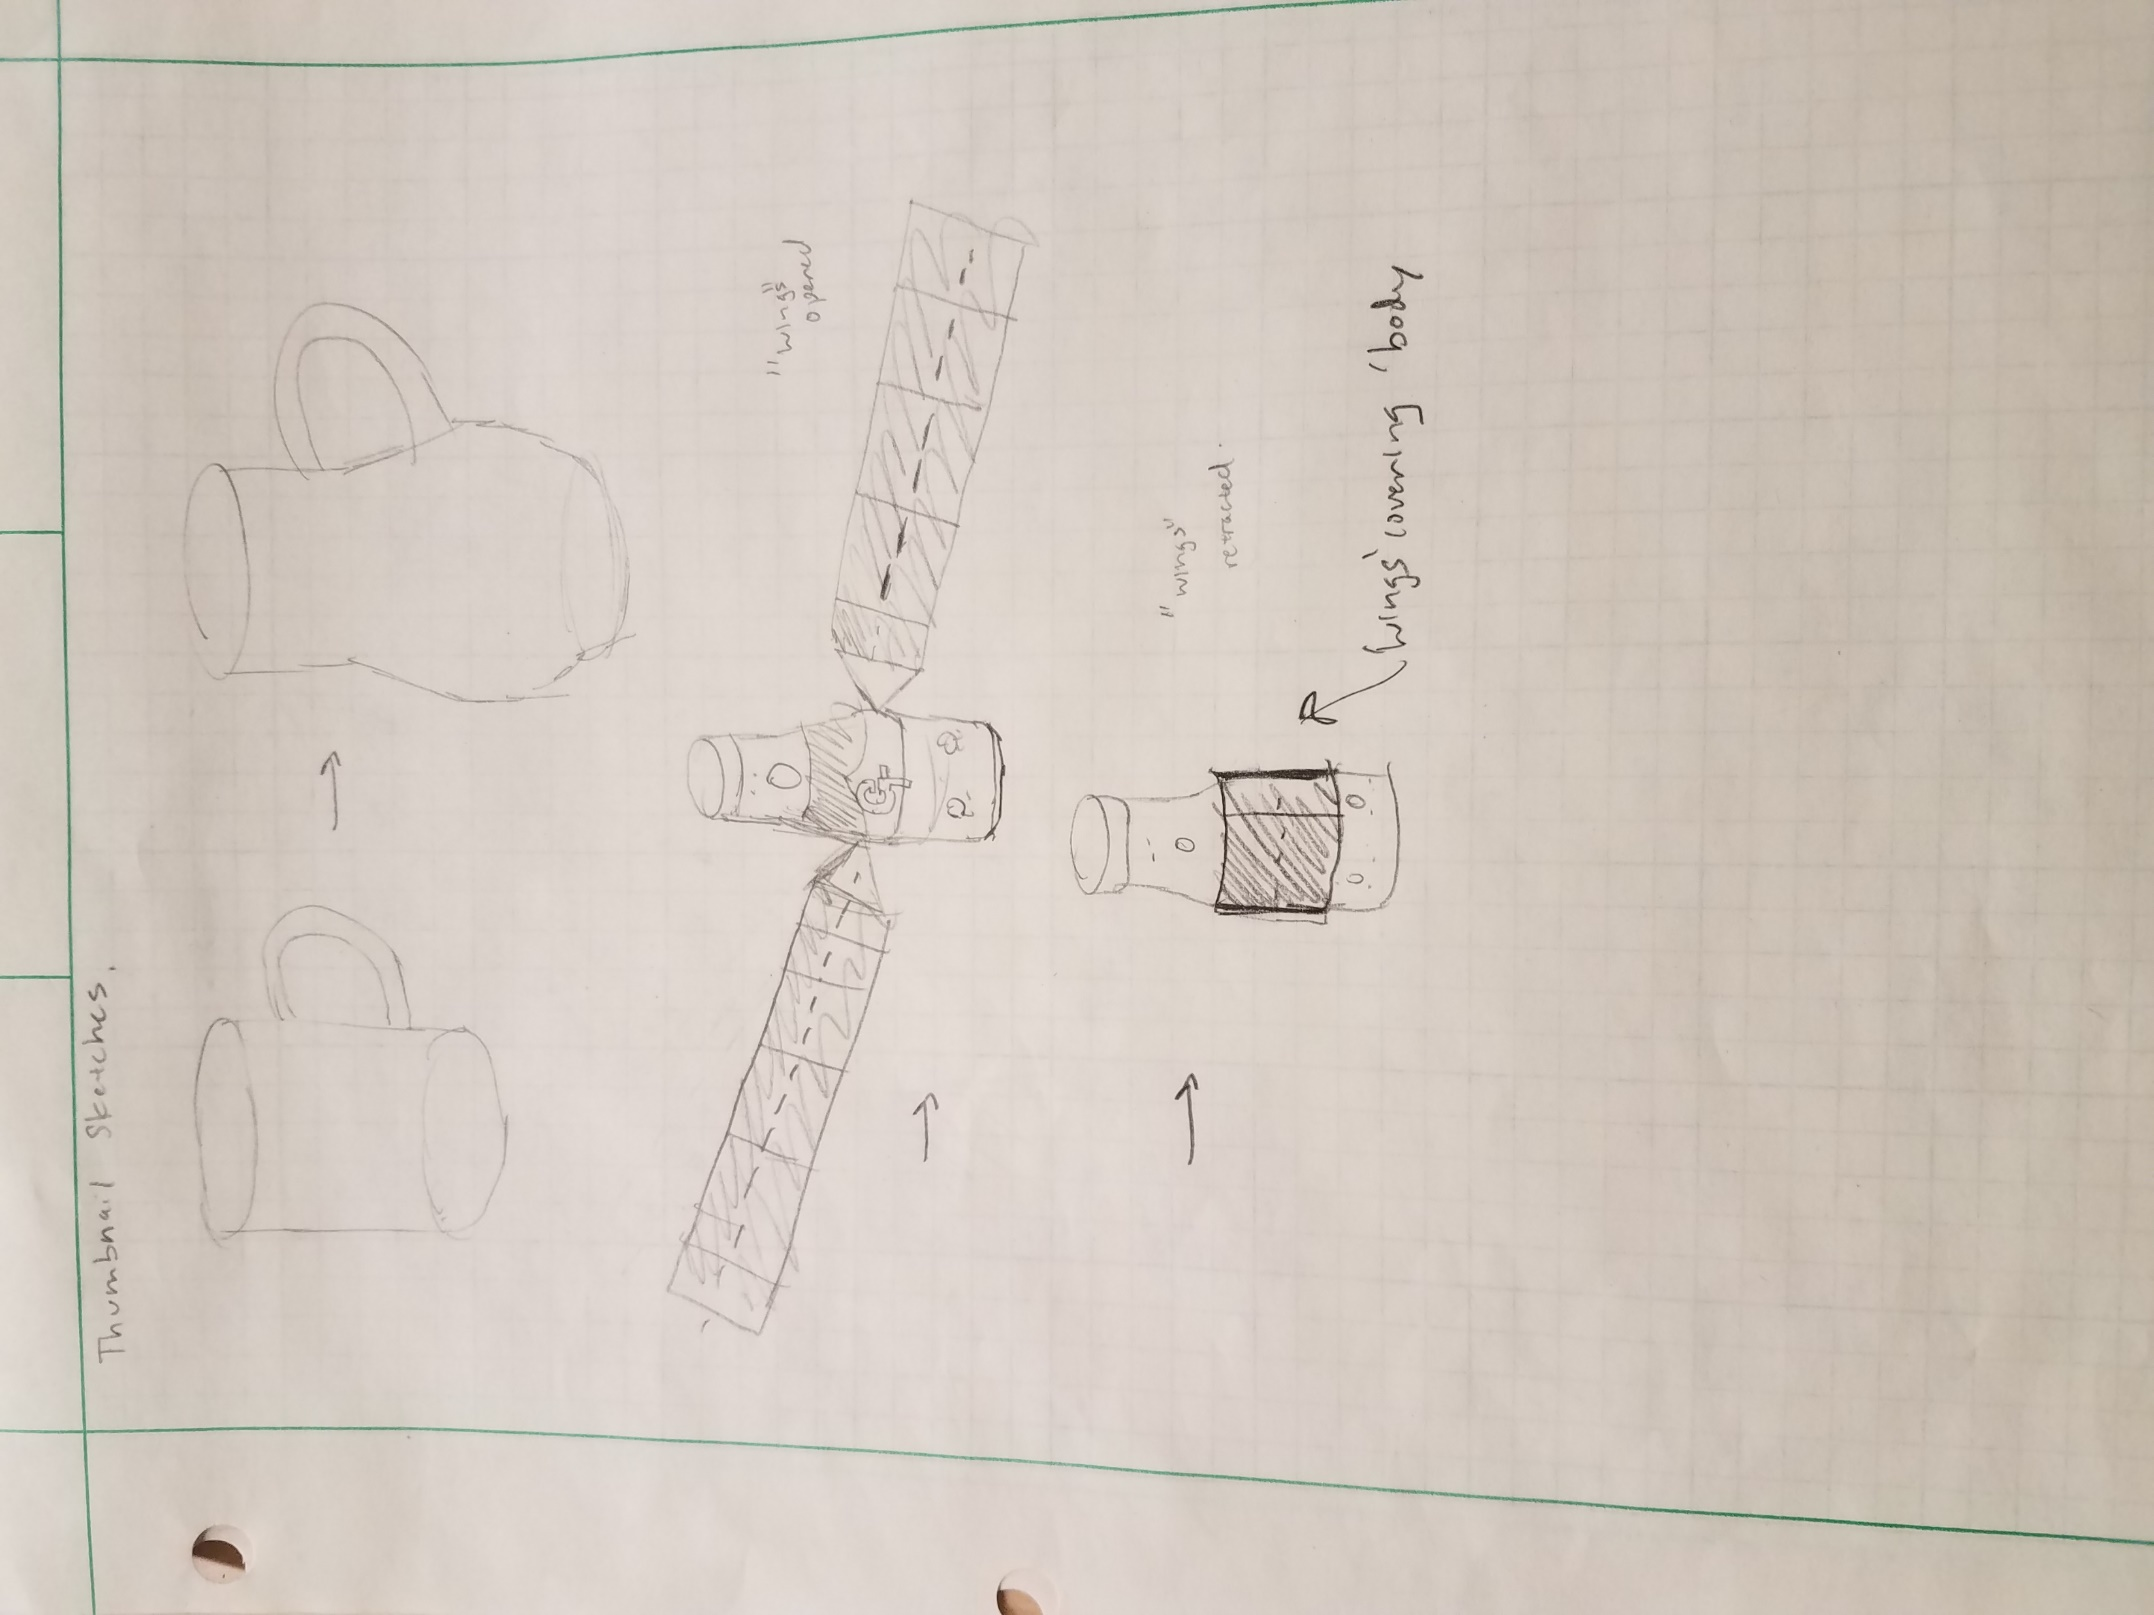 Thumbnail Sketches.
"wings"
opened
GT
"wings"
retracted.
'wings' covering 'body